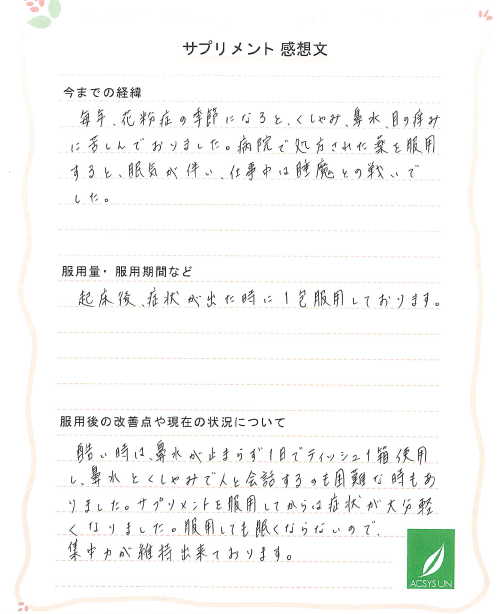 サプリメント 感想文
今までの経緯
毎年、花粉症の季節になると、くしゃみ、鼻水、目の痒み
に苦しんでおりました。病院で処方された薬を服用
すると、眠気が伴い、仕事中は睡魔との戦いで
した。
服用量・服用期間など
起床後、症状が出た時に1包服用しております。
服用後の改善点や現在の状況について
酷い時は、鼻水が止まらず1日でティッシュ1箱使用
し、鼻水とくしゃみで人と会話するのも困難な時もあ
りました。サプリメントを服用してからは症状が大分軽
くなりました。服用しても眠くならないので、
集中力が維持出来ております。
ACSYSUN